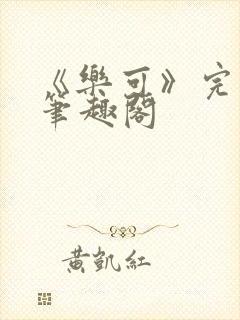 《樂可》完
筆趣閣
黃凱紅